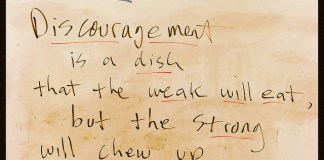 Discouragement
is a dish
that the weak will eat,
but the strong
will chew up